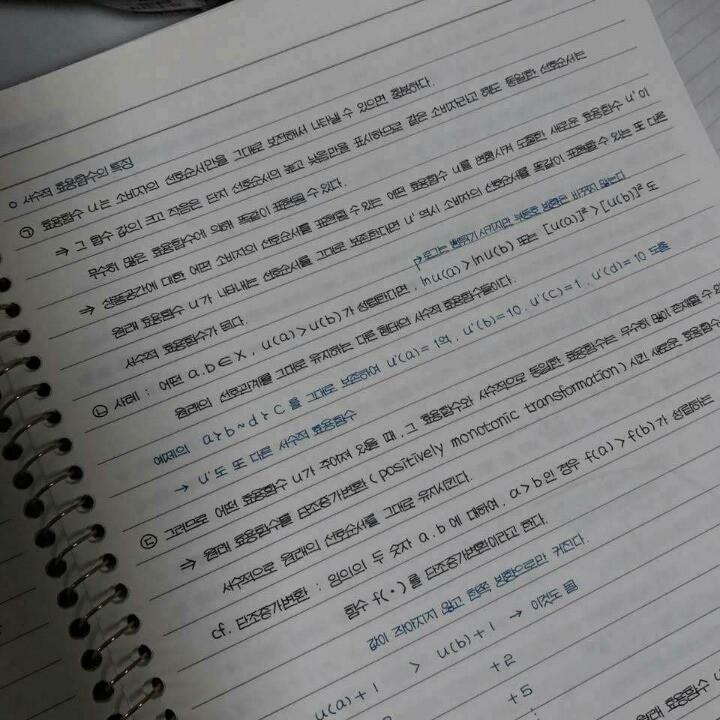 ○ 서수적 효용함수의 특징
㉠ 효용함수 u는 소비자의 선호순서만을 그대로 보전해서 나타낼 수 있으면 충분하다.
⇒ 그 함수 값의 크고 작음은 단지 선호순서의 높고 낮음만을 표시하므로 같은 소비자라고 해도 동일한 선호순서는
무수히 많은 효용함수에 의해 똑같이 표현될 수 있다.
⇒ 상품공간에 대한 어떤 소비자의 선호순서를 표현할 수 있는 어떤 효용함수 u를 변형시켜 도출한 새로운 효용함수 u'이
원래 효용함수 u가 나타내는 선호순서를 그대로 보존한다면 u' 역시 소비자의 선호순서를 똑같이 표현할 수 있는 또 다른
서수적 효용함수가 된다.
로그는 변환시키지만 부등호 방향은 바꾸지 않는다
㉡ 사례 : 어떤 a.b∈X, u(a)>u(b)가 성립한다면, lnu(a)>lnu(b) 또는 [u(a)]²>[u(b)]²도
원래의 선호관계를 그대로 유지하는 다른 형태의 서수적 효용함수들이다.
예제의 a≻b~d≻c 를 그대로 보존하여 u'(a)=19, u'(b)=10, u'(c)=1, u'(d)=10 도출
→ u'도 또 다른 서수적 효용함수
㉢ 그러므로 어떤 효용함수 u가 주어져 있을 때, 그 효용함수와 서수적으로 동일한 효용함수는 무수히 많이 존재할 수
⇒ 원래 효용함수를 단조증가변환(positively monotonic transformation)시킨 새로운 효용함수
서수적으로 원래의 선호순서를 그대로 유지시킨다.
cf. 단조증가변환 : 임의의 두 숫자 a.b에 대하여, a>b인 경우 f(a)>f(b)가 성립하는
함수 f(•)를 단조증가변환이라고 한다.
값이 작아지지 않고 한쪽 방향으로만 커진다.
u(a)+1 > u(b)+1 → 이것도 됨
+2
+5